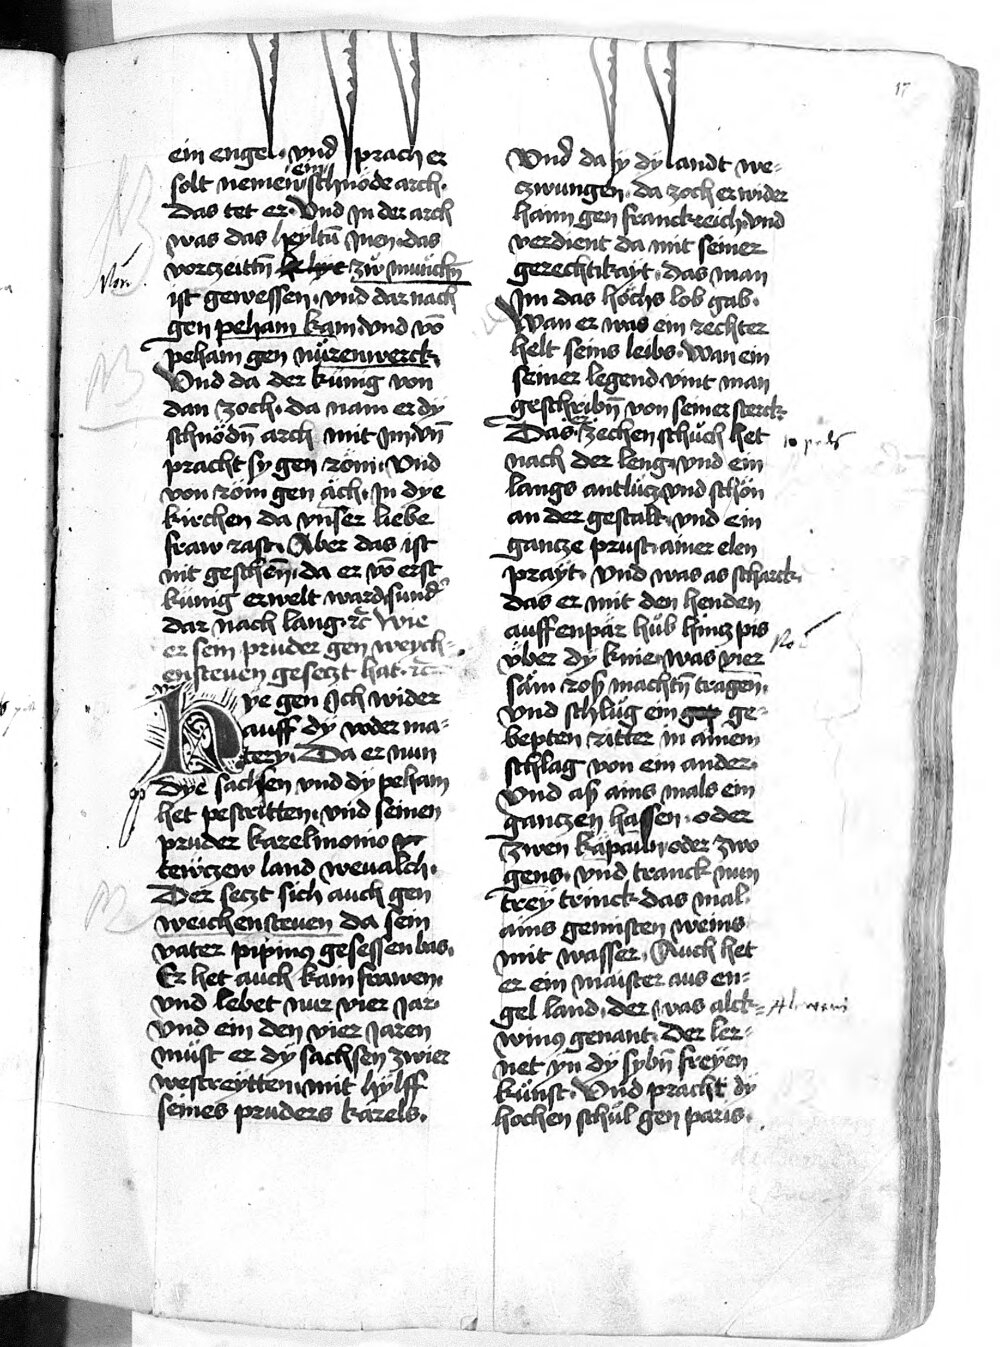 17
ein engel · vnd sprach er
solt nemen ein schnöde arch ·
Das tet er · Vnd in der arch
was das heyltū ynen · das
vorczeitn̄ zw̆ mu̇nchn̄
ist gewessen · vnd dar nach
gen peham kam · vnd vō
peham gen nürenwerck ·
Vnd da der künig von
dan zoch · da nam er dÿ
schnödn̄ arch mit im · vn̄
pracht sy gen röm · Vnd
von röm gen äch · in dye
kirchen da vnser liebe
fraw rast · Aber das ist
nit geschen̄ · da er vō erst
künig erwelt ward · sund̾
dar nach lang · ⁊c̄ Wie
er sein pruder gen weych-
ensteuen geseczt hat · ⁊c̄
Hye gen ich wider
auff dÿ voder ma-
tery · Da er nun
dye sachsen vnd dÿ peham
het pestritten · vnd seinen
pruder karelmonio
tewczew land wevalch ·
Der seczt sich auch gen
weichensteuen da sein
vater pipinꝰ gesessen bas ·
Er het auch kain frawen ·
vnd lebet nur vier iar ·
Vnd ein den vier iaren
müst er dÿ sachsen zwier
westreytten · mit hÿlff
seines pruders karels ·
Vnd da sy dÿ landt we-
czwungen · da zoch er wider
haim gen franckreich · vnd
verdient da mit seiner
gerechtikayt · das man
im das höchs lob gab ·
Wan er was ein rechter
helt seins leibs · Wan ein
seiner legend vint man
geschribn̄ von seiner sterck ·
Das er zechen schu̇ch het
nach der leng · vnd ein
langs antlücz vnd schön
an der gestalt · vnd ein
gancze prust · ainer elen
prayt · Vnd was as starck ·
das er mit den henden
auffenpär hüb hincz pis
über dÿ knie · was vier
säm roß machtn̄ tragen̄ ·
vnd schlüg ein ge-
bepten ritter in ainem
schlag von ein ander ·
Vnd aß ains mals ein
ganczen hassen · oder
zwen käpaun · oder zwo
gens · vnd tranck nun
trey trinck das mal ·
ains gemisten weins
mit wasser · Auch het
er ein maister aus en-
gel land · der was alck-
winꝰ genant · Der ler-
net yn dÿ sybn̄ freyen
künst · Vnd pracht dÿ
hochen schül gen paris ·